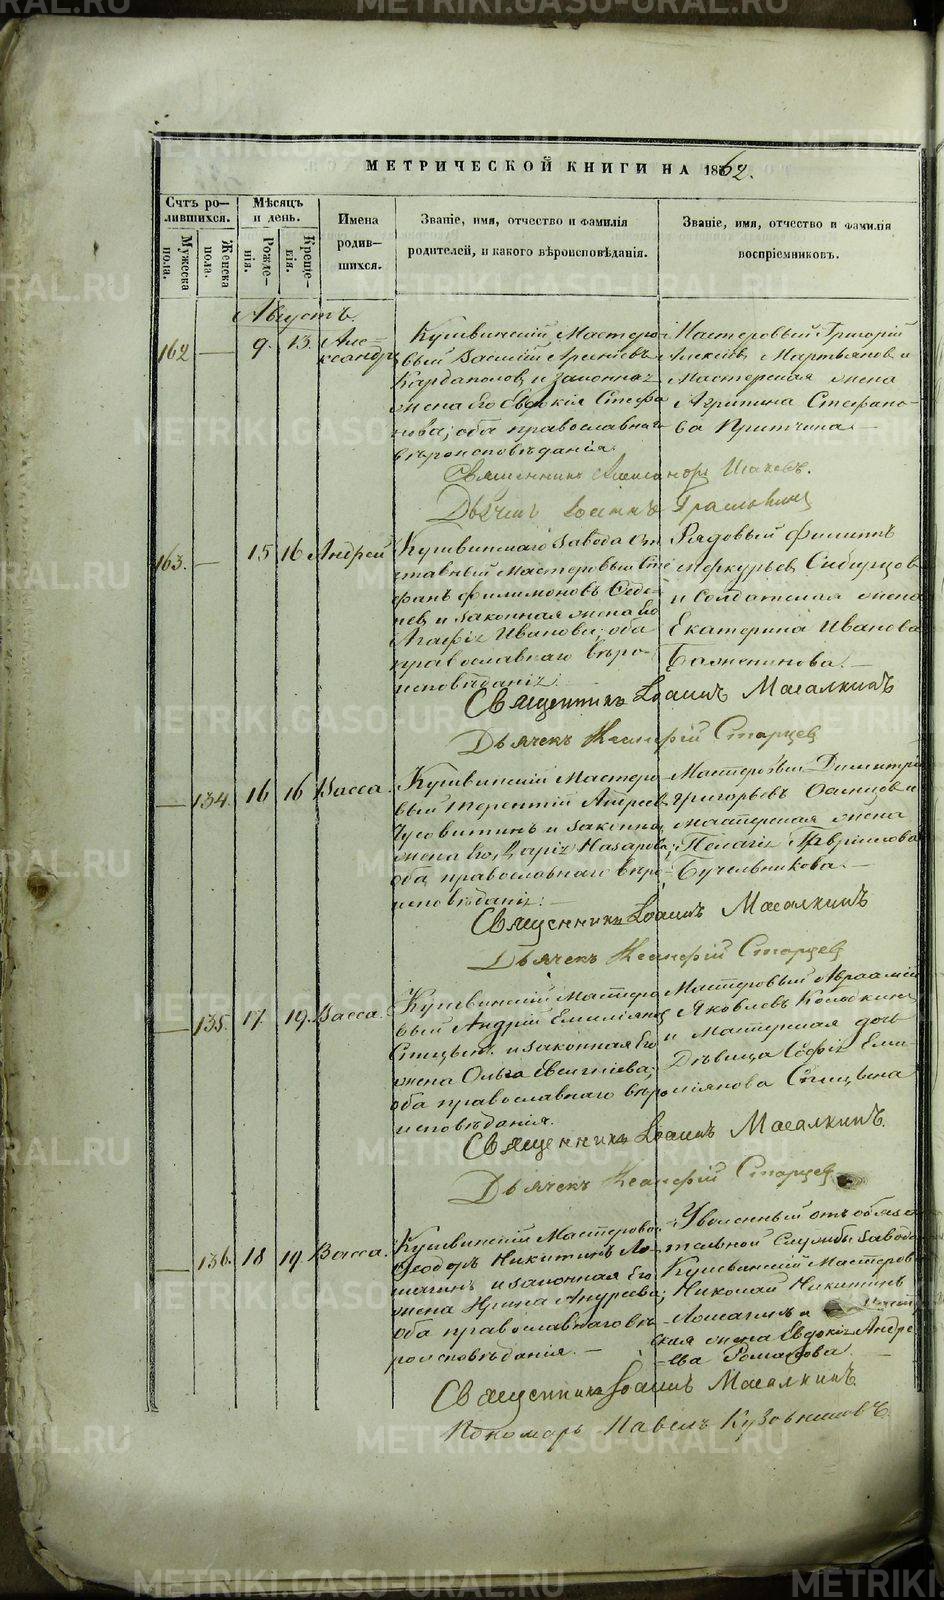 METRIKI.GASO-URAL.RU
МЕТРИЧЕСКОЙ КНИГИ НА 1862.
Счтъ ро-
лившихся.
Мужеска
пола.
Женска
пола.
Мѣсяцъ
и день.
Рожде-
нія.
Креще-
нія.
Имена
родив-
шихся.
Званіе, имя, отчество и фамилія
родителей, и какого вѣроисповѣданія.
Званіе, имя, отчество и фамилія
воспріемниковъ.
Августъ.
162 — 9. 13. Але-
ксандръ
Кушвинскій Мастеро-
вый Василій
и законная
жена его Евдокія Стефа-
нова; оба православнаго
вѣроисповѣданія.
Мастеровый Григорій
Мартьянов и
Мастерская жена
Агрипина Стефано-
ва
Священникъ Александръ
Дьячекъ Іоаннъ
163. — 15 16 Андрей
Кушвинскаго завода От-
ставный мастеровый Сте-
фанъ Филимоновъ
и законная жена его
Агафія Иванова; оба
православнаго вѣро-
исповѣданія.
Рядовый Филиппъ
Меркурьев Сибирцов
и солдатская жена
Екатерина Иванова
Священникъ Іоаннъ Масалкинъ
Дьячекъ Ксанфій Старцев
— 134. 16 16 Васса.
Кушвинскій Мастеро-
вый Терентій Андреев
Чусовитинъ и законная
жена его, Дарія Назарова;
оба православнаго вѣро-
исповѣданія: —
Мастеровый Димитрій
Григорьевъ и
мастерская жена
Пелагія Гавриилова
Бучельникова. —
Священникъ Іоаннъ Масалкинъ
Дьячекъ Ксанфій Старцев
— 135. 17. 19. Васса.
Кушвинскій Мастеро-
вый Андрей Емиліянов
Спицынъ и законная его
жена Ольга Евсигніева;
оба православнаго вѣро-
исповѣданія.
Мастеровый Авраамій
Яковлевъ
и Мастерская дочь
Дѣвица Софія Еми-
ліянова Спицына
Священникъ Іоаннъ Масалкинъ.
Дьячекъ Ксанфій Старцев
— 136. 18 19. Васса.
Кушвинскій Мастеровой
Ѳеодоръ Никитинъ Ло-
магинъ и законная его
жена Ирина Андреева;
оба православнаго вѣ-
роисповѣданія. —
Уволенный отъ обяза-
тельной службы завода
Кушвинскій Мастеров
Николай Никитинъ
Ломагинъ и
ская жена Евдокія Андре-
ева Романова
Священникъ Іоаннъ Масалкинъ
Пономарь Павелъ Кузовниковъ.